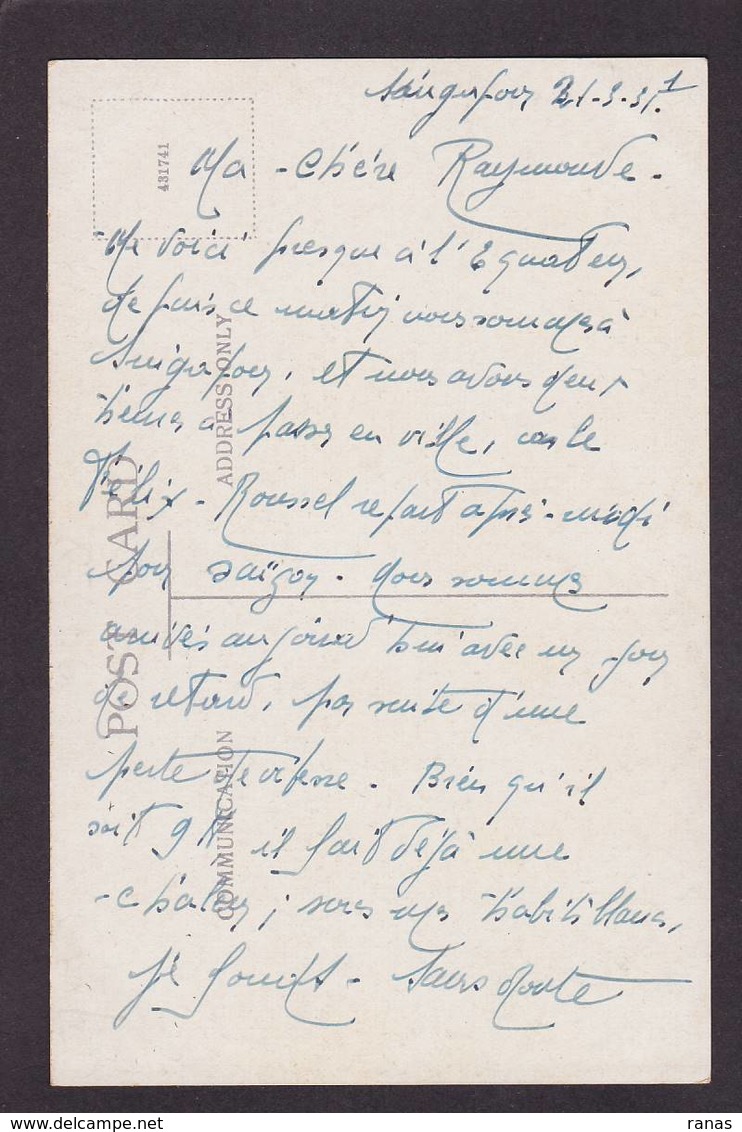 21-3-31
Ma chère Raymonde.
Me voici presque à l'Equateur,
depuis ce matin nous sommes à
Singapour, et nous avons deux
heures à passer en ville, car le
Félix-Roussel repart après-midi
pour Saïgon. Nous sommes
arrivés aujourd'hui avec un jour
de retard, par suite d'une
perte de vitesse. Bien qu'il
soit 9 h il fait déjà une
chaleur; sous mes
Sans doute
431741
POST CARD
COMMUNICATION
ADDRESS ONLY
ranas